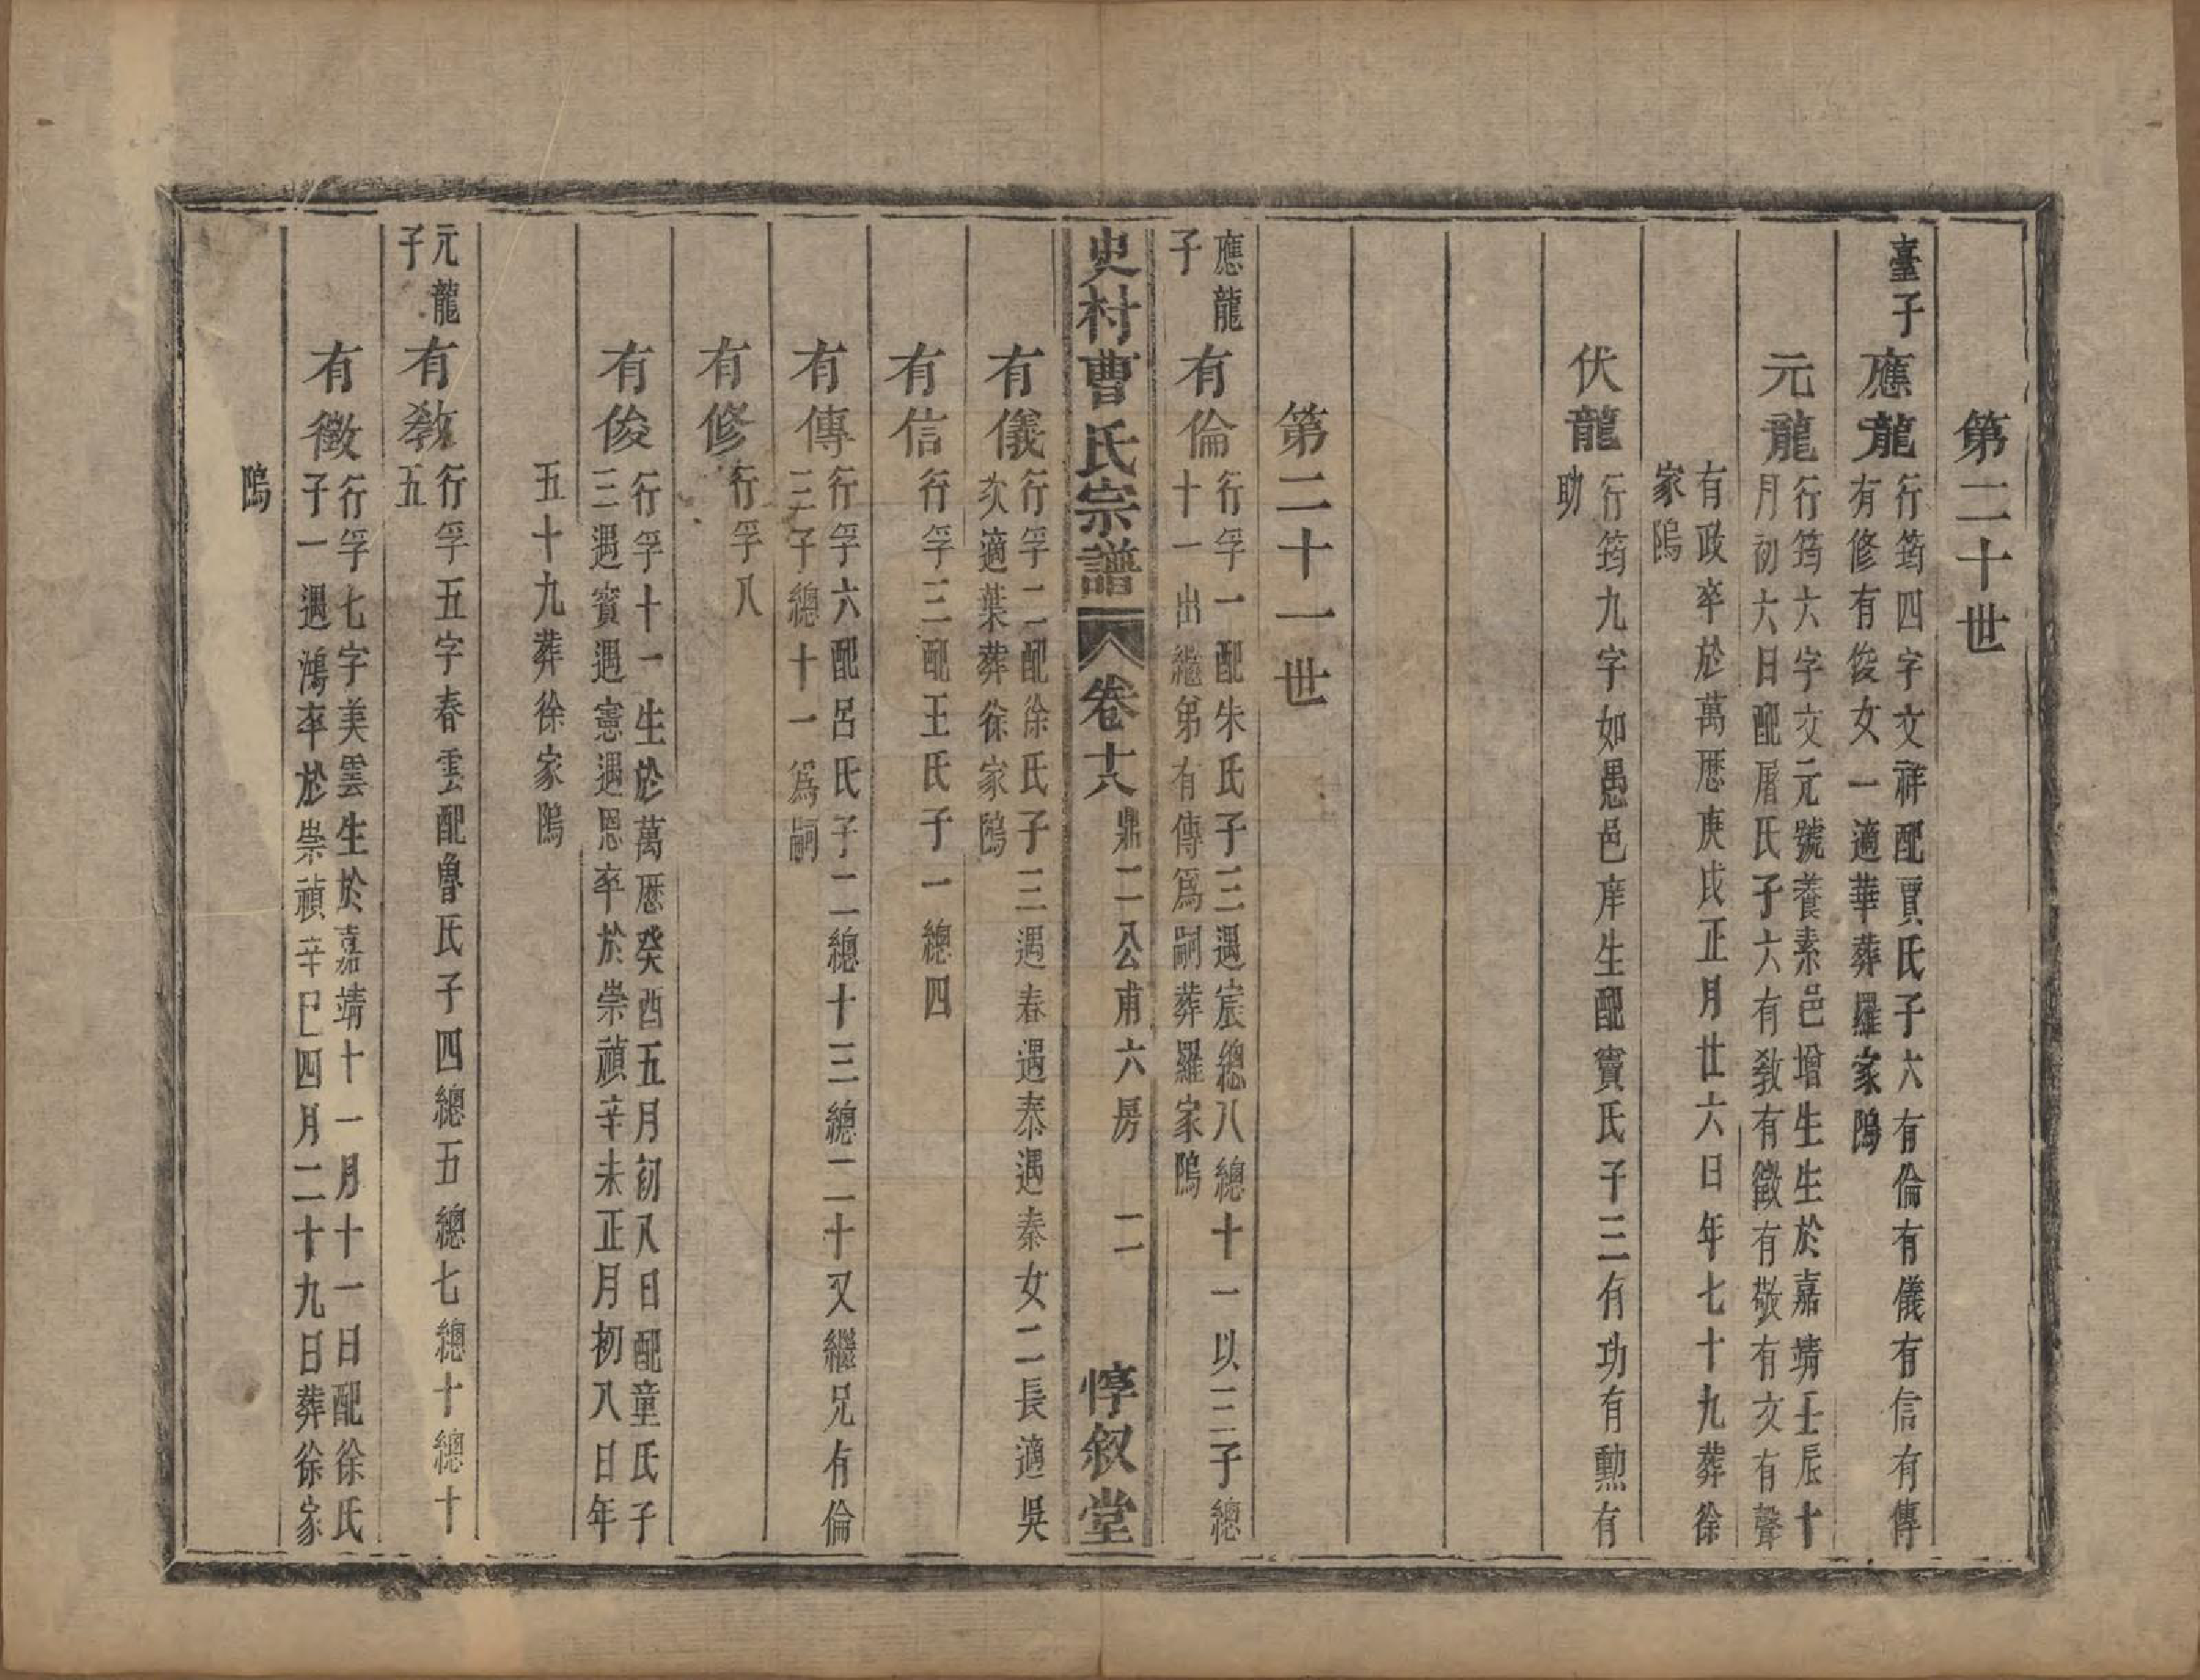 第二十世
臺子
應龍
行筠四字文祥配賈氏子六有倫有儀有信有傳
有修有俊女一適華葬羅家隖
元龍
行筠六字交元號養素邑增生生於嘉靖壬辰十
月初六日配屠氏子六有敎有徵有敬有文有聲
有政卒於萬厯庚戌正月廿六日年七十九葬徐
家隖
伏龍
行筠九字如愚邑庠生配竇氏子三有功有勲有
助
第二十一世
應龍
子
有倫
行孚一配朱氏子三遇宸總八總十一以三子總
十一出繼弟有傳爲嗣葬羅家隖
史村曹氏宗譜
卷十八
鼎二公甫六房
二
惇叙堂
有儀
行孚二配徐氏子三遇春遇泰遇秦女二長適吳
次適葉葬徐家隖
有信
行孚三配王氏子一總四
有傳
行孚六配呂氏子二總十三總二十又繼兄有倫
三子總十一爲嗣
有修
行孚八
有俊
行孚十一生於萬厯癸酉五月初又日配童氏子
三遇賓遇憲遇恩卒於崇禎辛未正月初八日年
五十九葬徐家隖
元龍
子
有敎
行孚五字春雲配魯氏子四總五總七總十總十
五
有徵
行孚七字美雲生於嘉靖十一月十一日配徐氏
子一遇鴻卒於崇禎辛巳四月二十九日葬徐家
隖